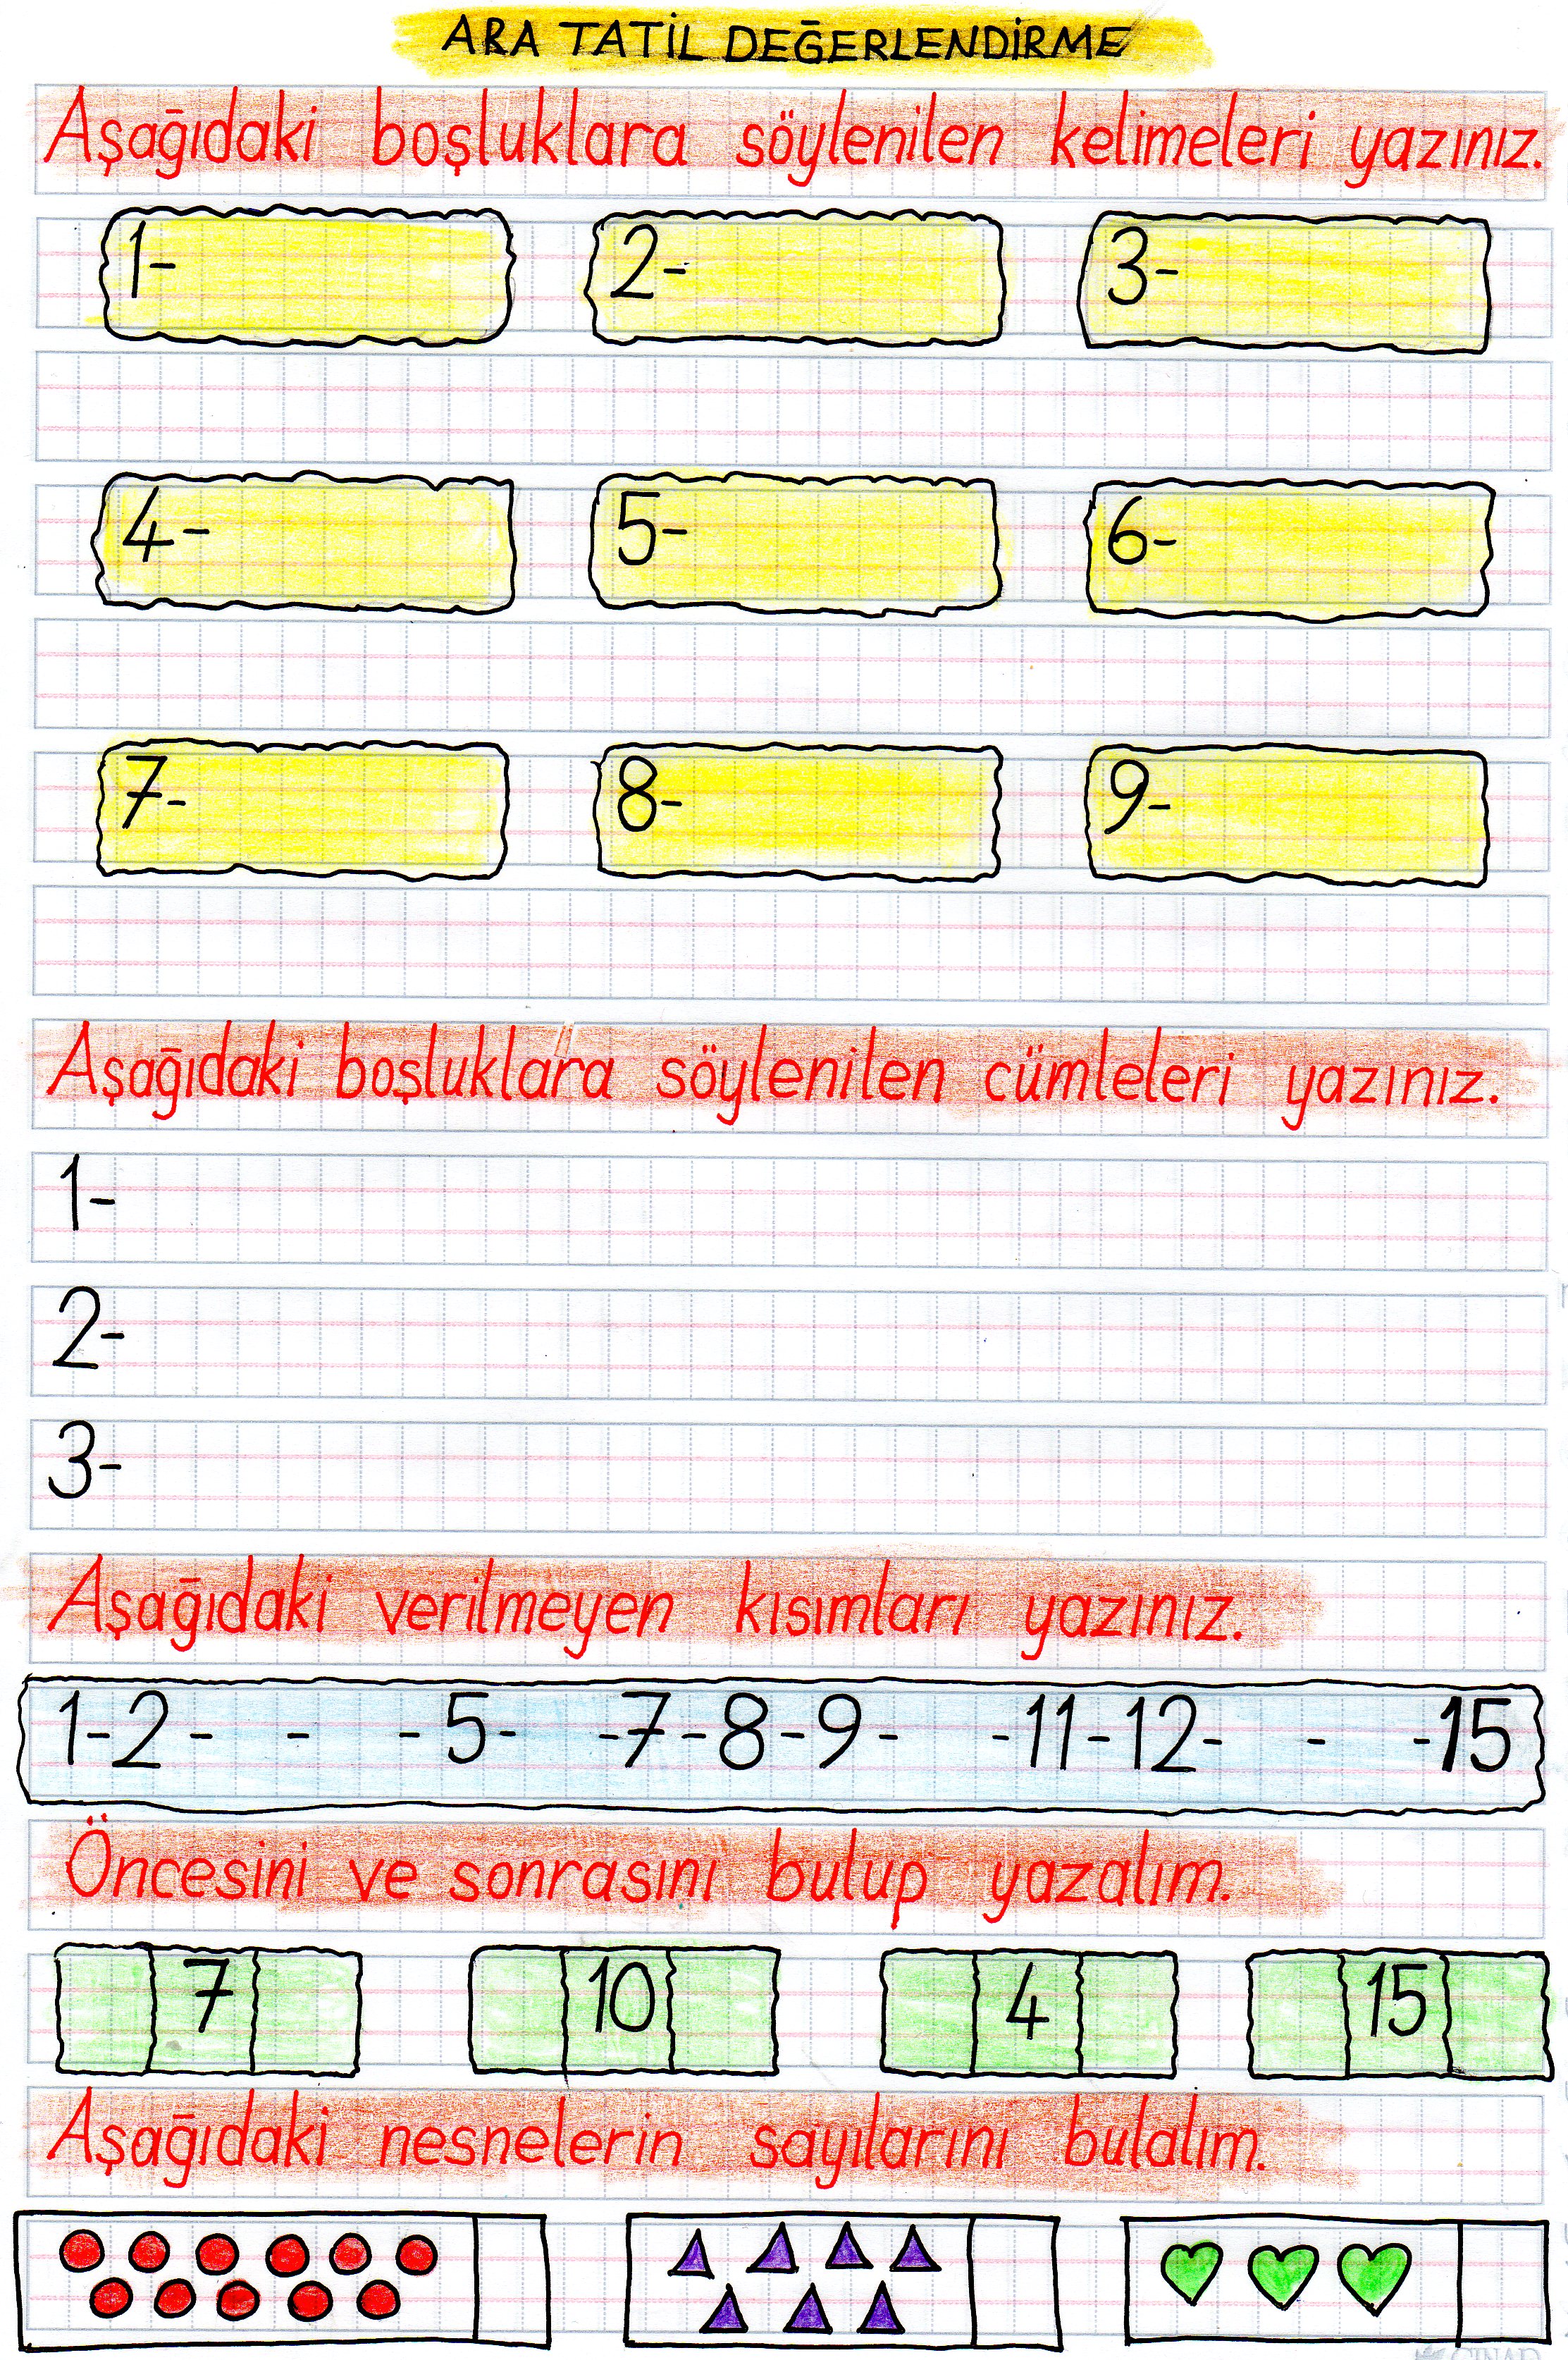 ARA TATİL DEĞERLENDİRME
Aşağıdaki boşluklara söylenilen kelimeleri yazınız.
1- 2- 3-
4- 5- 6-
7- 8- 9-
Aşağıdaki boşluklara söylenilen cümleleri yazınız.
1-
2-
3-
Aşağıdaki verilmeyen kısımları yazınız.
1-2- - -5- -7-8-9- -11-12- - -15
Öncesini ve sonrasını bulup yazalım.
7 10 4 15
Aşağıdaki nesnelerin sayılarını bulalım.